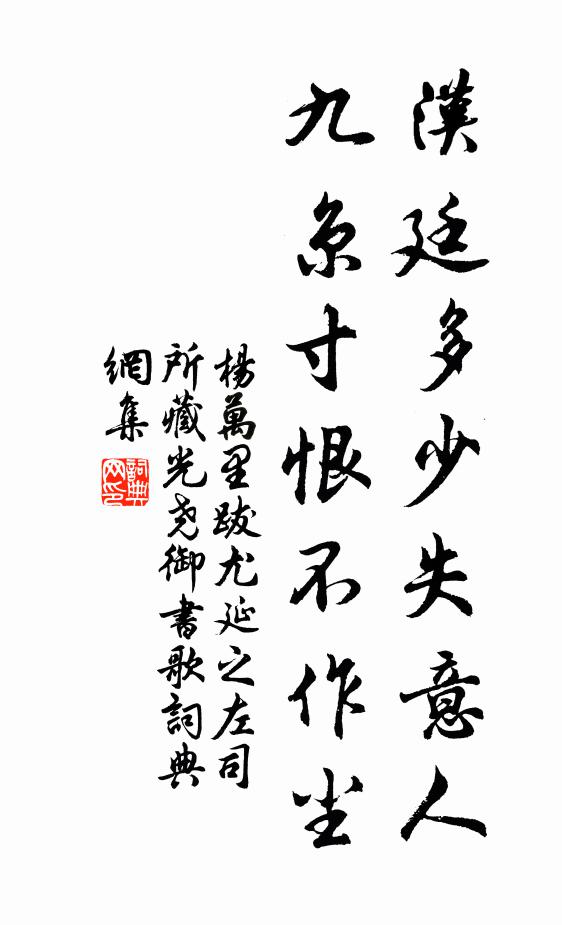 漢廷多少失意人
九京寸恨不作尘
楊萬里跋尤延之左司
所藏光尧御書歌詞典
網集
詞典
网印